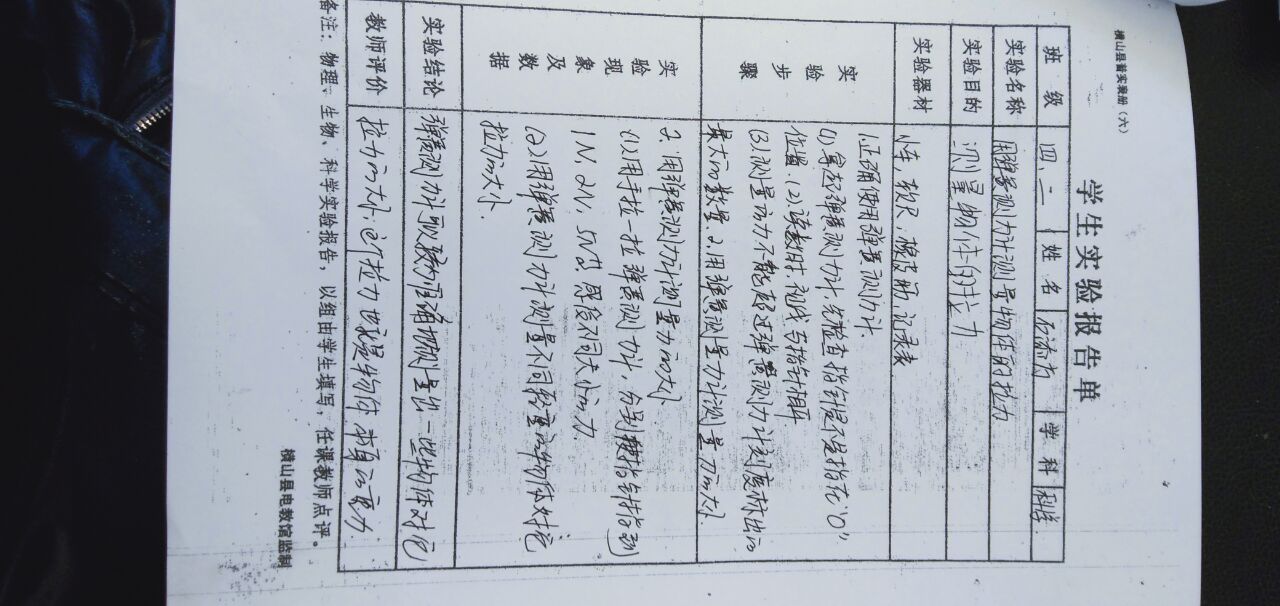 横山县普实验册（六）
学生实验报告单
班级 四、二 姓名 学科 科学
实验名称 用弹簧测力计测量物体的拉力
实验目的 测量物体的拉力
实验器材 小车，软尺，橡皮筋，记录表
实验步骤
1.正确使用弹簧测力计
(1)拿起弹簧测力计先检查指针是不是指在“0”
位置.(2)读数时.视线与指针相平
(3).测量力不能超过弹簧测力计刻度标出的
最大的数量.2.用弹簧测量力计测量力的大小.
实验现象及数据
2.用弹簧测力计测量力的大小
(1).用手拉一拉弹簧测力计，分别使指针指到
1N，2N，5N，感受不同大小的力.
(2).用弹簧测力计测量不同轻重的物体对它
拉力的大小.
实验结论 弹簧测力计可以较准确地测量出一些物体对它
教师评价 拉力的大小.这个拉力也就是物体本身的重力.
备注：物理、生物、科学实验报告，以组由学生填写，任课教师点评。
横山县电教馆监制